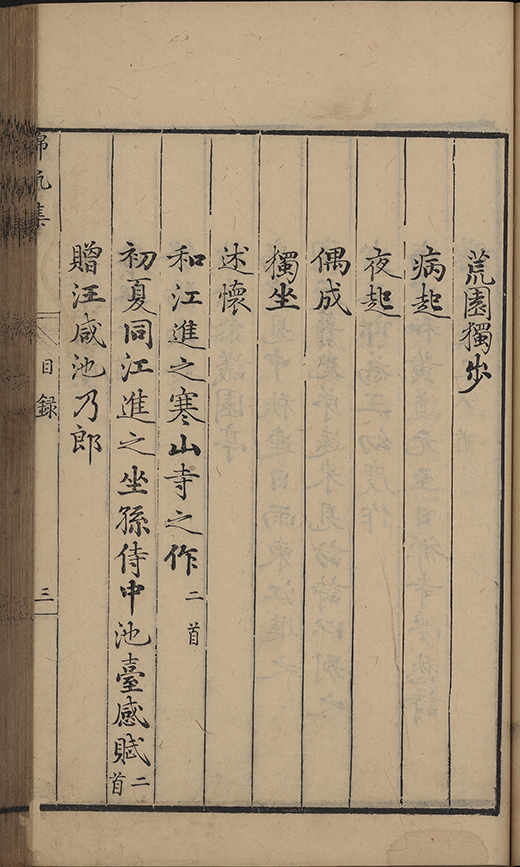 荒園獨步
病起
夜起
偶成
獨坐
述懷
和江進之寒山寺之作二首
初夏同江進之坐孫侍中池臺感賦二首
贈汪咸池乃郎
錦帆集
目錄
三